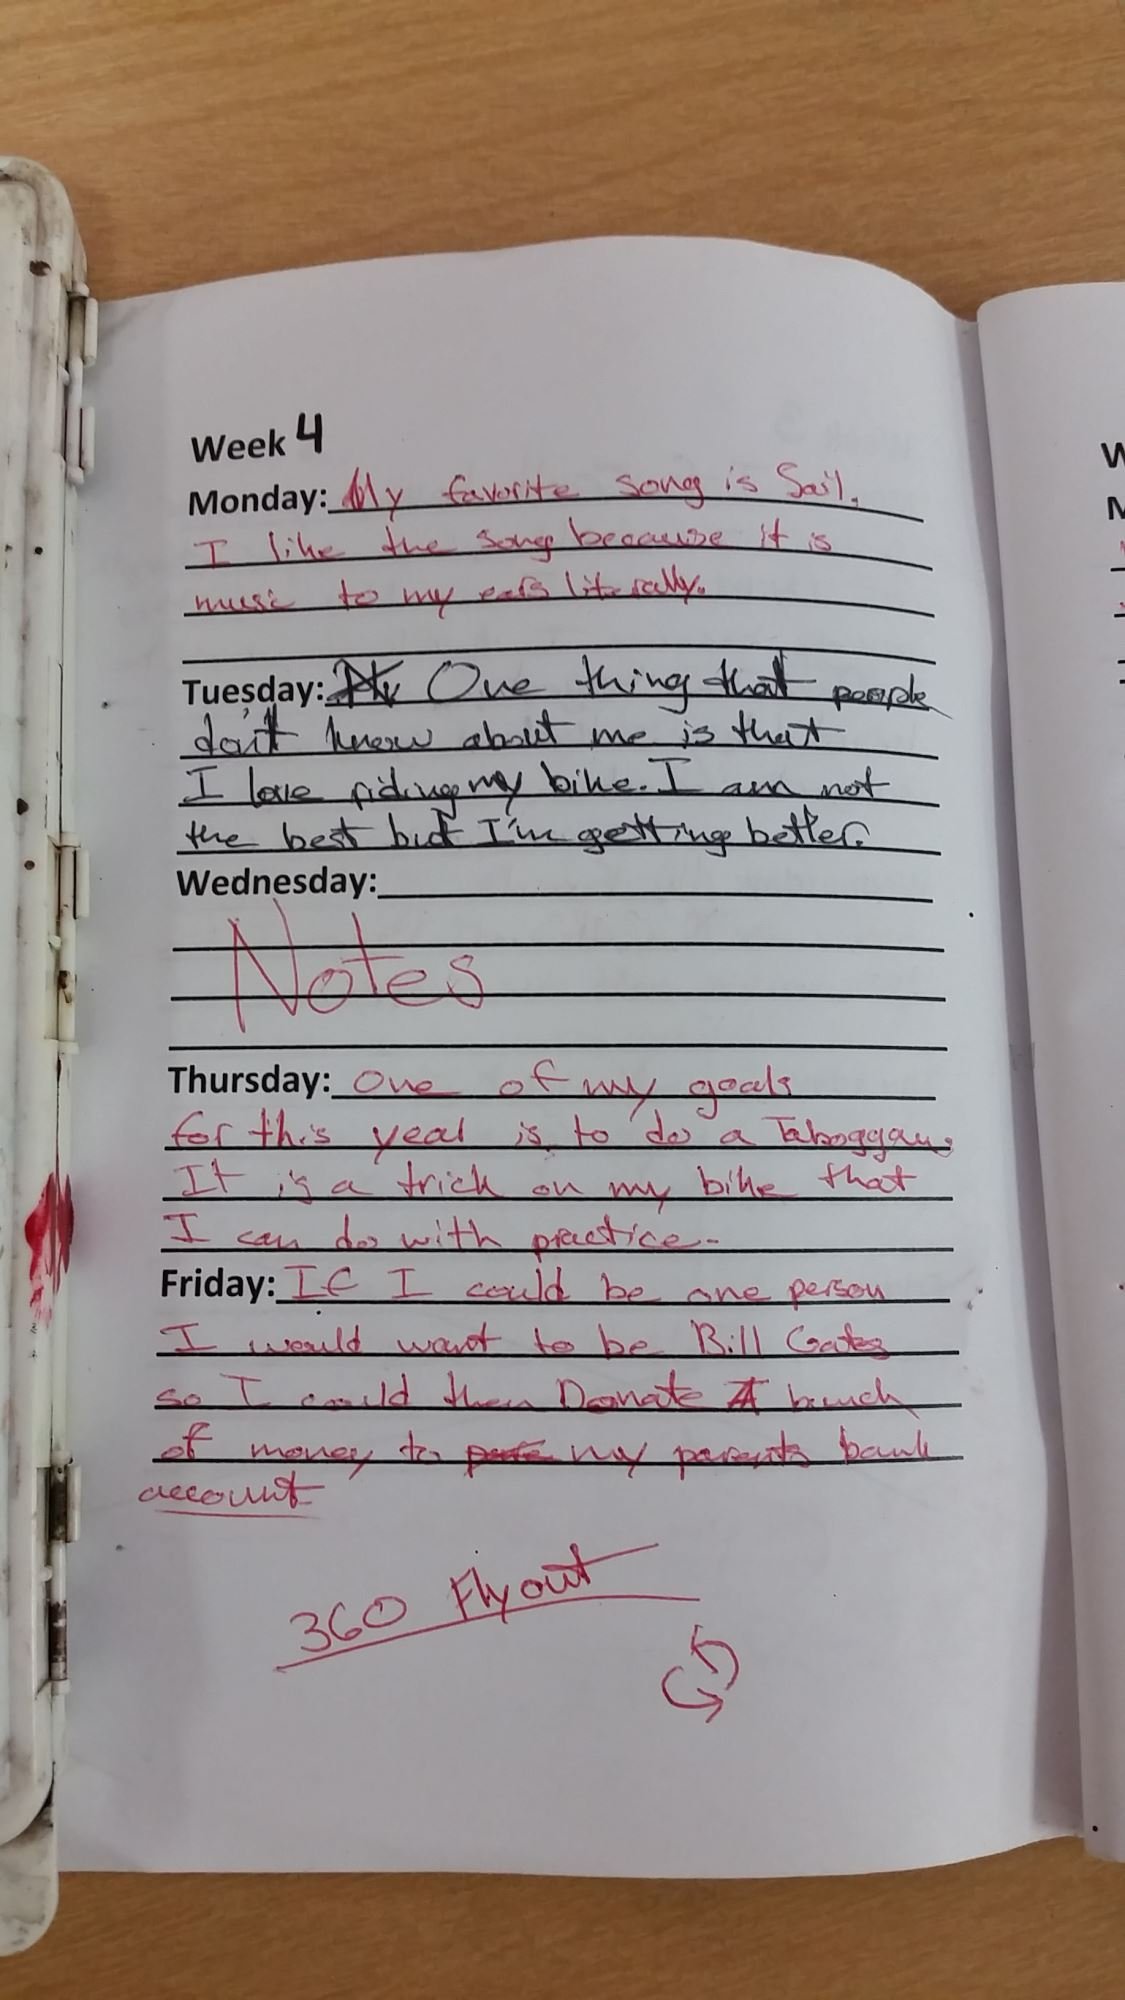 Week 4
Monday: My favorite song is Sail.
I like the song because it is
music to my ears literally.
Tuesday: One thing that people
don't know about me is that
I love riding my bike. I am not
the best but I'm getting better.
Wednesday:
Notes
Thursday: One of my goals
for this year is to do a Taboggan.
It is a trick on my bike that
I can do with practice.
Friday: If I could be one person
I would want to be Bill Gates
so I could then Donate A bunch
of money to my parents bank
account
360 Flyout
W
M